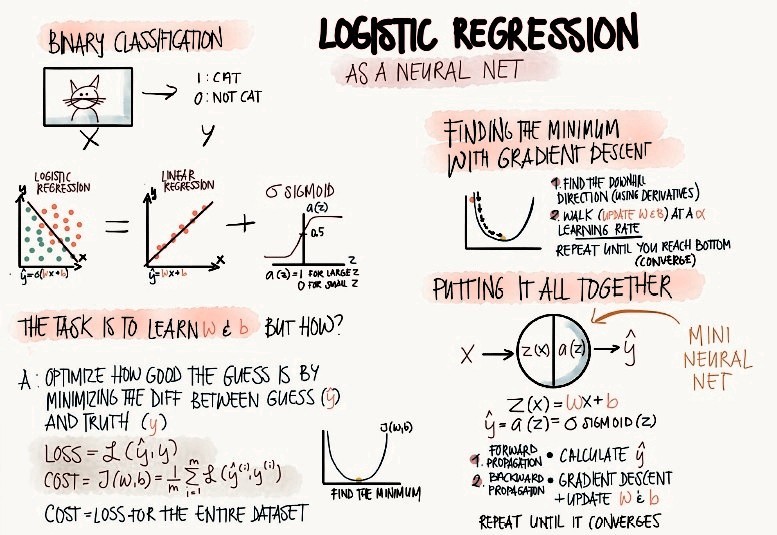 LOGISTIC REGRESSION
AS A NEURAL NET
BINARY CLASSIFICATION
1: CAT
0: NOT CAT
X
Y
LOGISTIC
REGRESSION
y
x
ŷ=σ(wx+b)
=
LINEAR
REGRESSION
y
x
ŷ=wx+b
+
σ SIGMOID
a(z)
0.5
z
a(z)=1 FOR LARGE Z
0 FOR SMALL Z
THE TASK IS TO LEARN w & b BUT HOW?
A: OPTIMIZE HOW GOOD THE GUESS IS BY
MINIMIZING THE DIFF BETWEEN GUESS (ŷ)
AND TRUTH (y)
LOSS = ℒ(ŷ,y)
COST = J(w,b) = 1/m Σ i=1 m ℒ(ŷ⁽ⁱ⁾,y⁽ⁱ⁾)
COST = LOSS FOR THE ENTIRE DATASET
J(w,b)
FIND THE MINIMUM
FINDING THE MINIMUM
WITH GRADIENT DESCENT
1. FIND THE DOWNHILL
DIRECTION (USING DERIVATIVES)
2. WALK (UPDATE W & B) AT A α
LEARNING RATE
REPEAT UNTIL YOU REACH BOTTOM
(CONVERGE)
PUTTING IT ALL TOGETHER
X
z(x) a(z)
ŷ
MINI
NEURAL
NET
Z(x) = wx+b
ŷ = a(z) = σ SIGMOID(z)
1. FORWARD
PROPAGATION • CALCULATE ŷ
2. BACKWARD
PROPAGATION • GRADIENT DESCENT
+ UPDATE w & b
REPEAT UNTIL IT CONVERGES